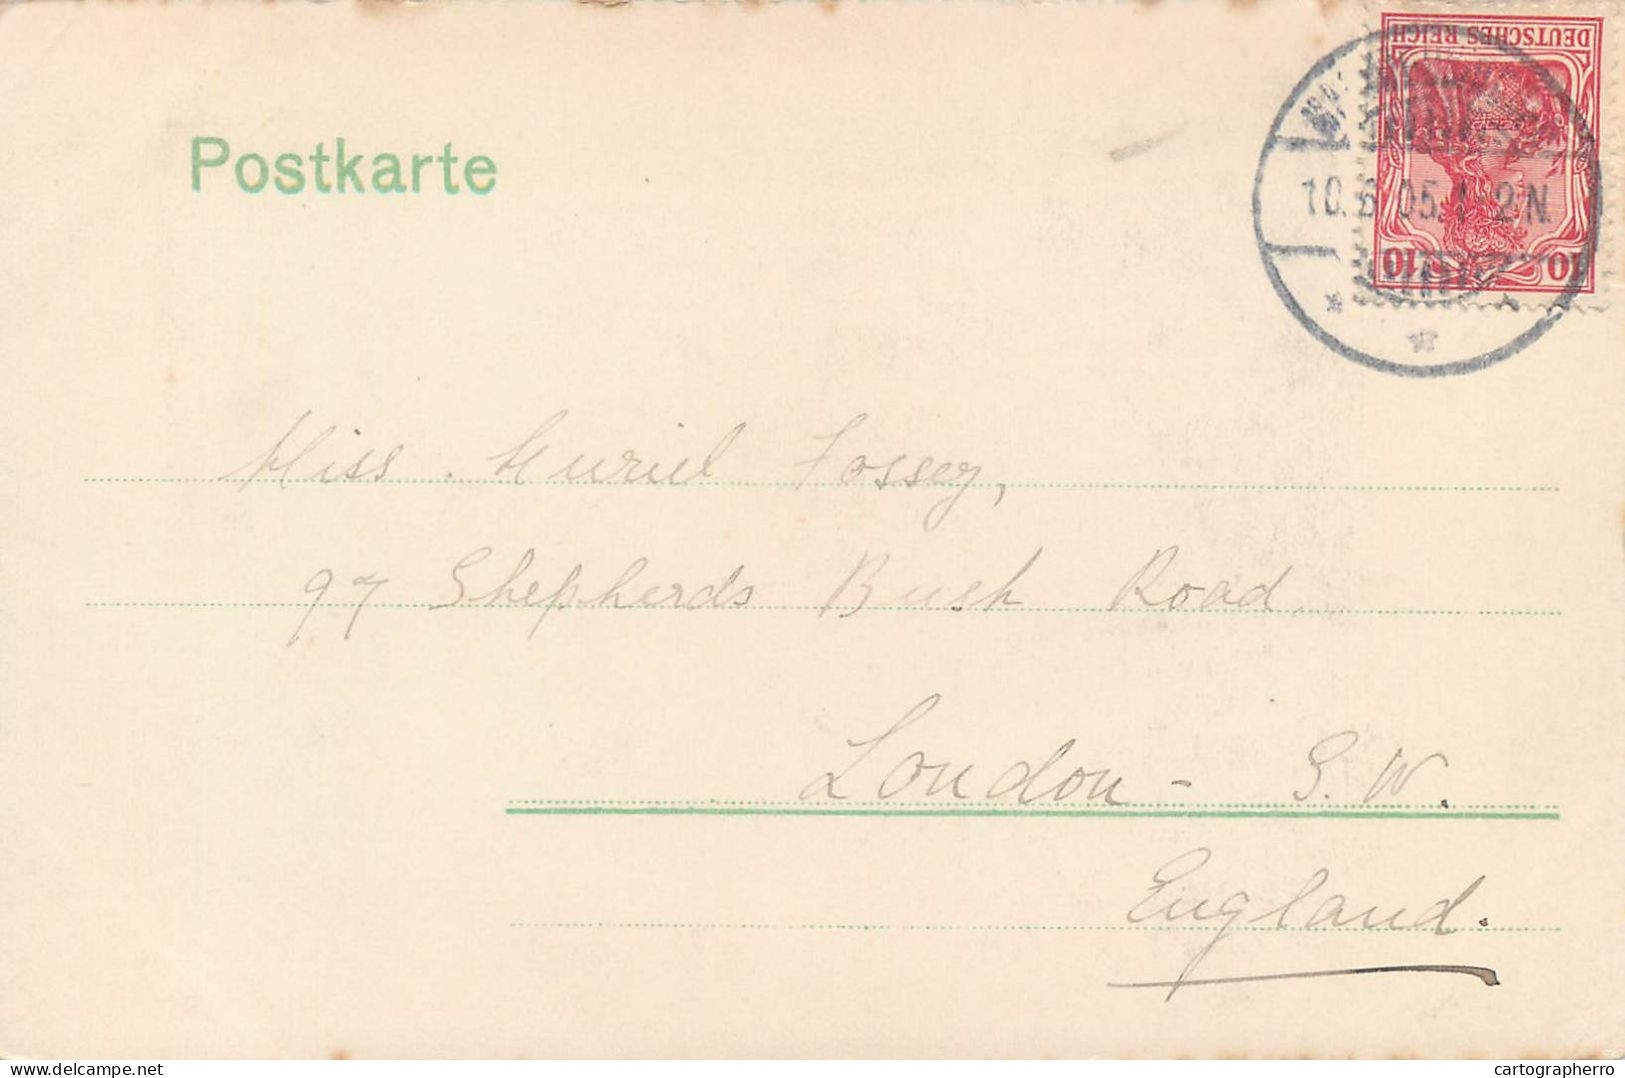 Postkarte
DEUTSCHES REICH
10 10
10.6.05.1-2N.
Miss. Muriel Fossey,
97 Shepherds Bush Road
London - S. W.
England.
delcampe.net
cartographerro